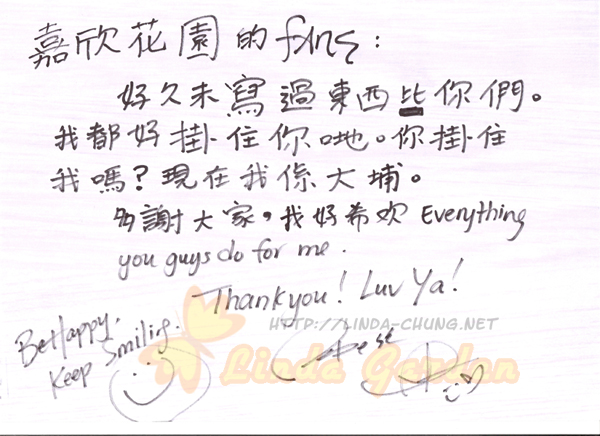 嘉欣花園的fans:
好久未寫過東西比你們。
我都好掛住你哋。你掛住
我嗎?現在我係大埔。
多謝大家。我好希欢 Everything
you guys do for me.
Thankyou! Luv Ya!
HTTP://LINDA-CHUNG.NET
Be Happy.
Keep Smiling.
Linda Garden